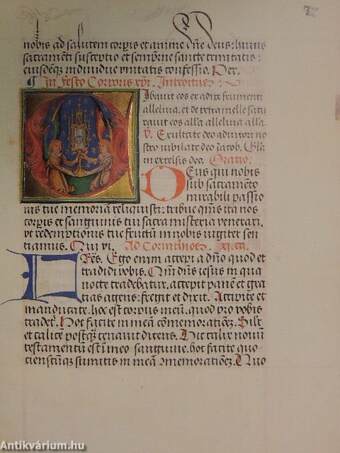 nobis ad salutem corpis et anime dñe deus huius
sacramēti susceptio et sempitne sancte trinitatis:
eiusdēqȝ individue unitatis confessio. Per.
In festo Corporis xp̄i. Introitus.
Cibavit eos ex adipe frumenti
alleluia. et de petra melle satu
ravit eos all'a alleluia all'a
v. Exultate deo adiutori no
stro iubilate deo iacob. Gl'a
in excelsis deo. Oratio.
DEus qui nobis
sub sacramēto
mirabili passio
nis tue memoriā reliquisti: tribue qm̄s ita nos
corpis et sanguinis tui sacra misteria venerari.
ut redemptionis tue fructū in nobis iugiter sen
tiamus. Qui vi. Ad Corinthios
FRes. Ego enim accepi a dño quod et
tradidi vobis. Qm̄ dñs iesus in qua
nocte tradebatur, accepit panē et gra
tias agens: fregit et dixit. Accipite et
manducate. hoc est corpus meū. quod pro vobis
tradet. Hoc facite in meā cōmemorationē. Silr
et calicē postqȝ cenavit dicens. Hic calix novū
testamentū est ī meo sanguine. hoc facite quo
tienscūqȝ sumitis in meā cōmemorationē. Quo
Antikvárium.hu